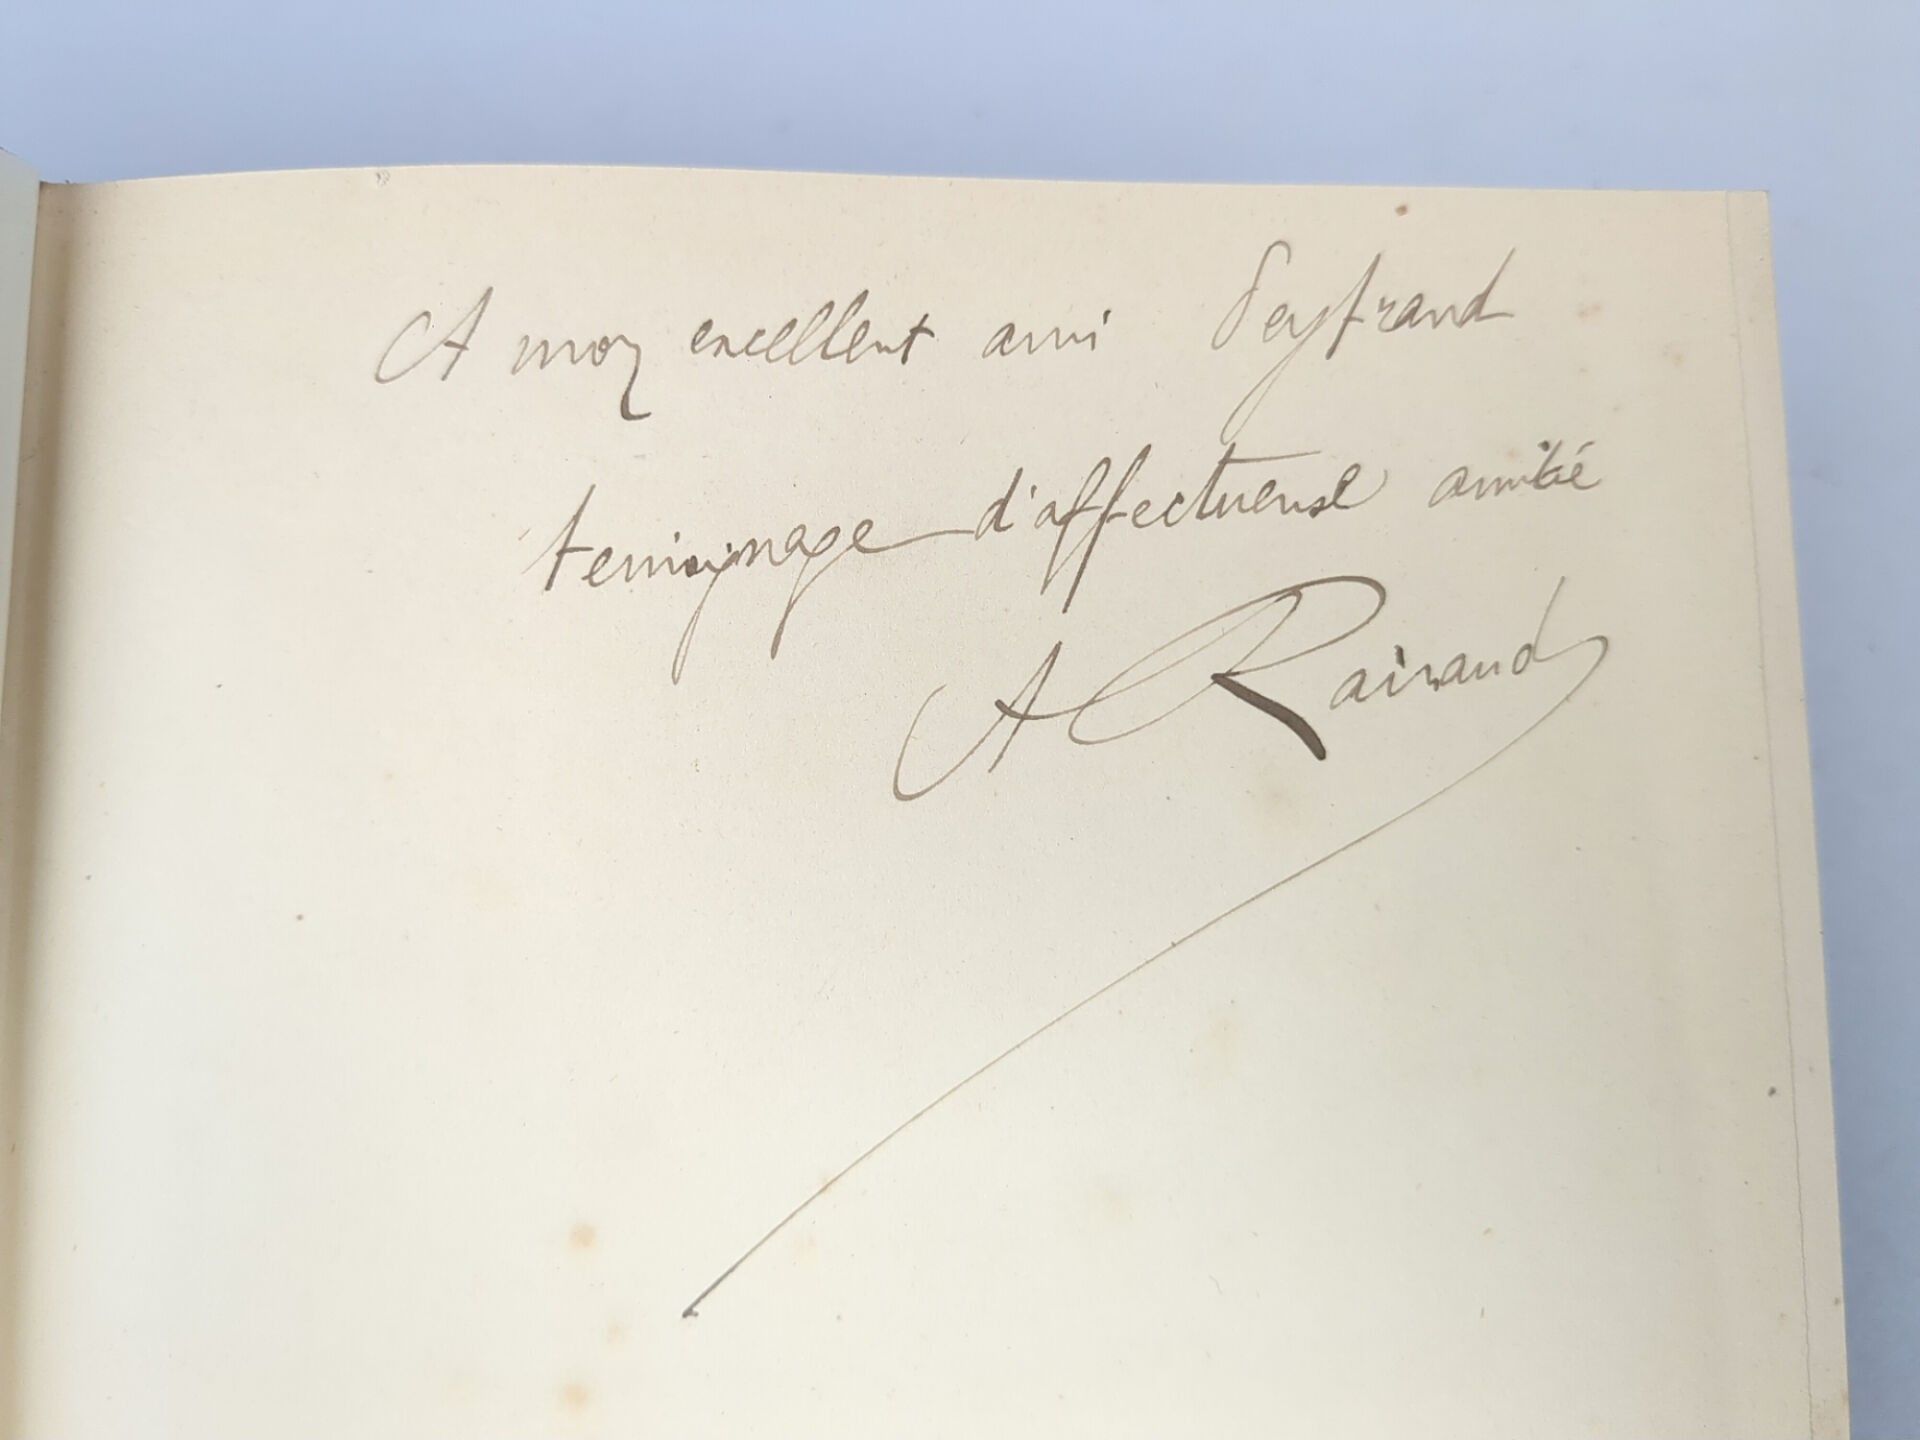 A mon excellent ami Peyfrand
temoignage d'affectueuse amitié
A Rainaud